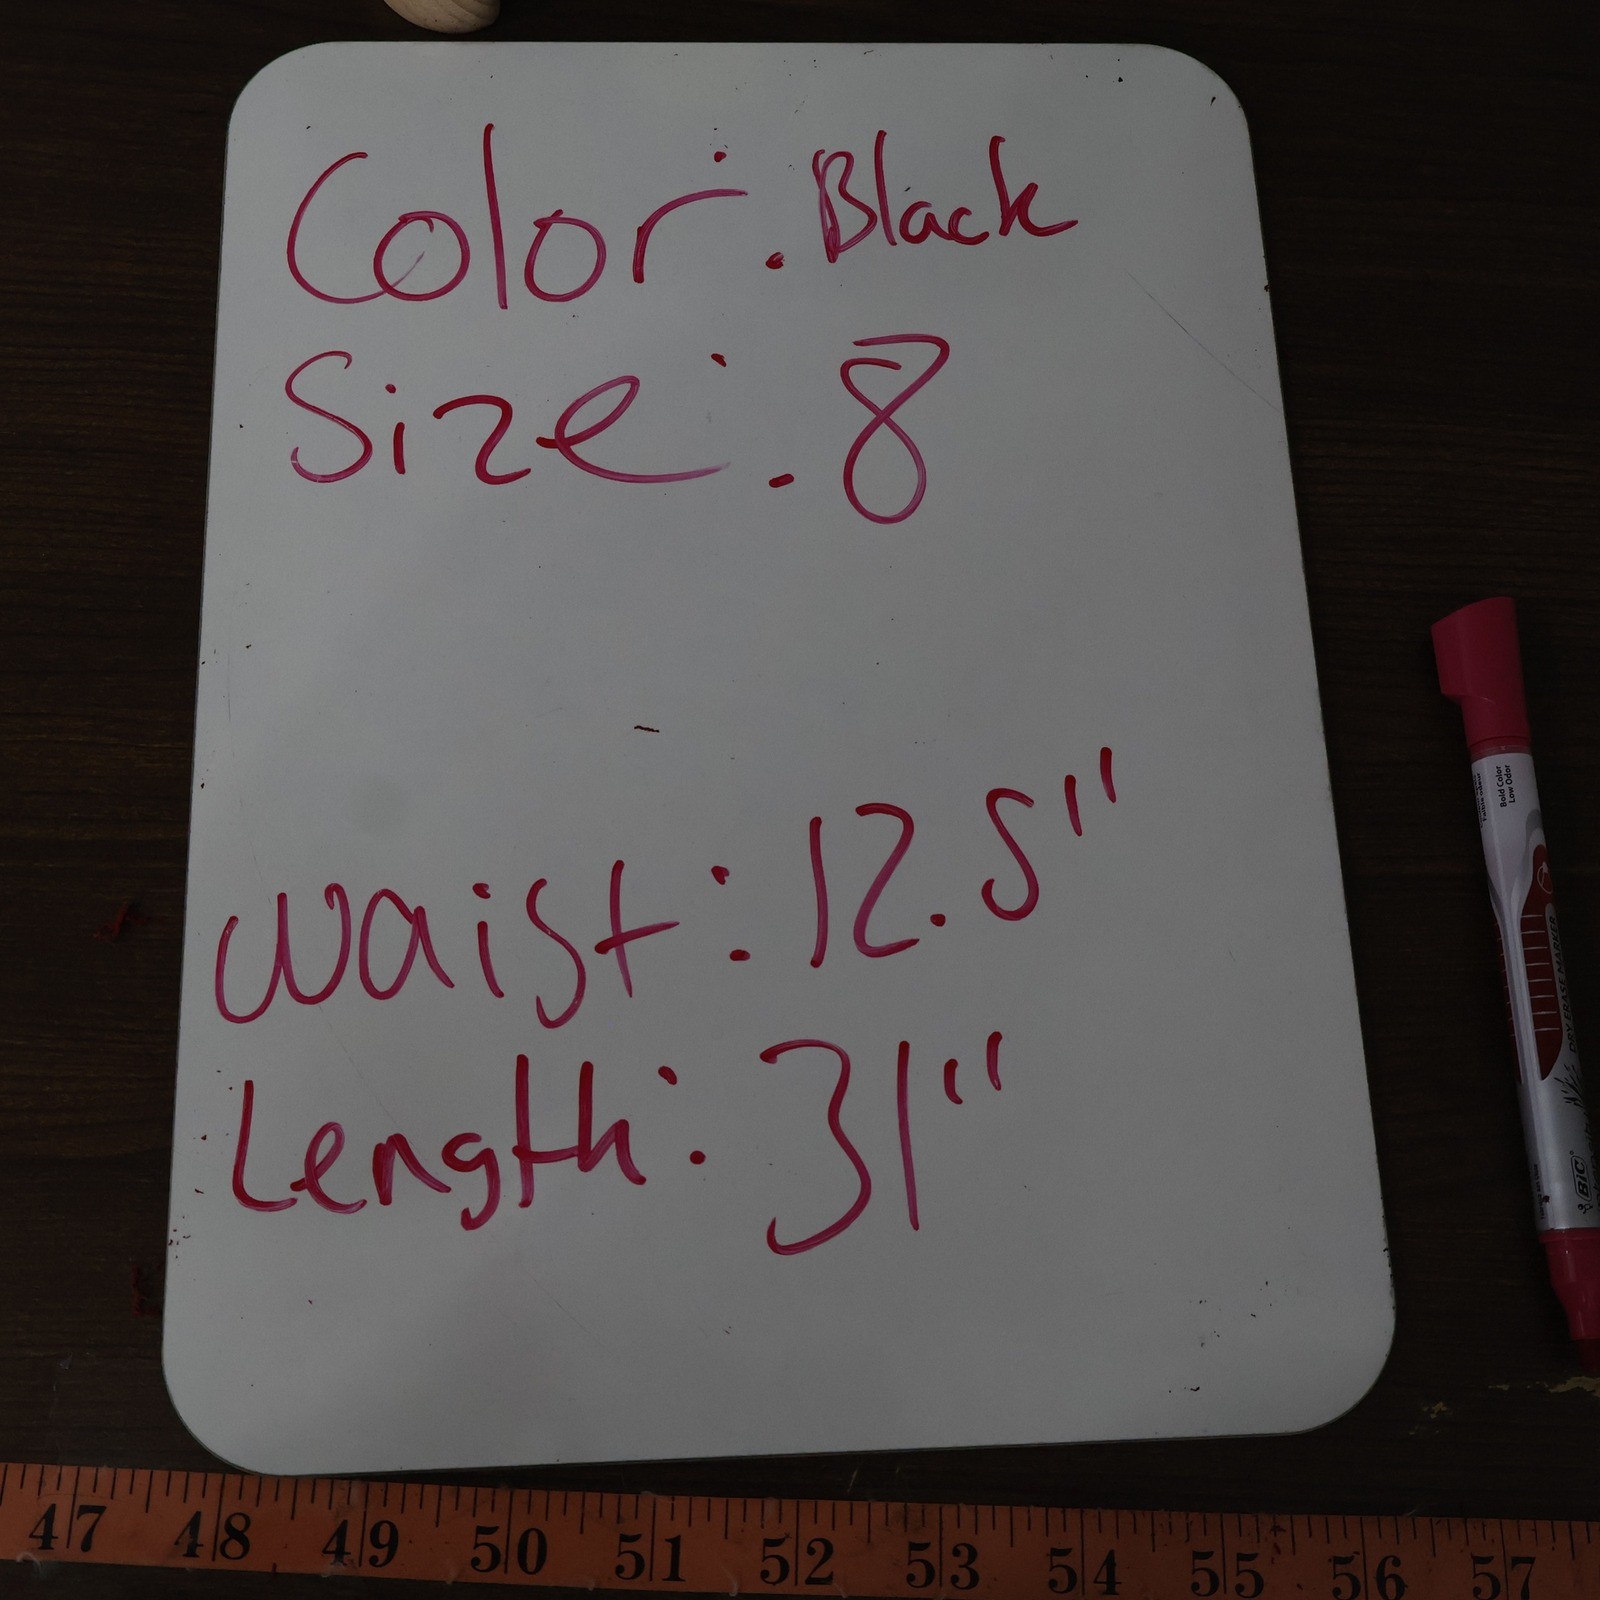 Color: Black
Size: 8
Waist: 12.5"
Length: 31"
Bold Color
Low Odor
DRY ERASE MARKER
BIC
47 48 49 50 51 52 53 54 55 56 57